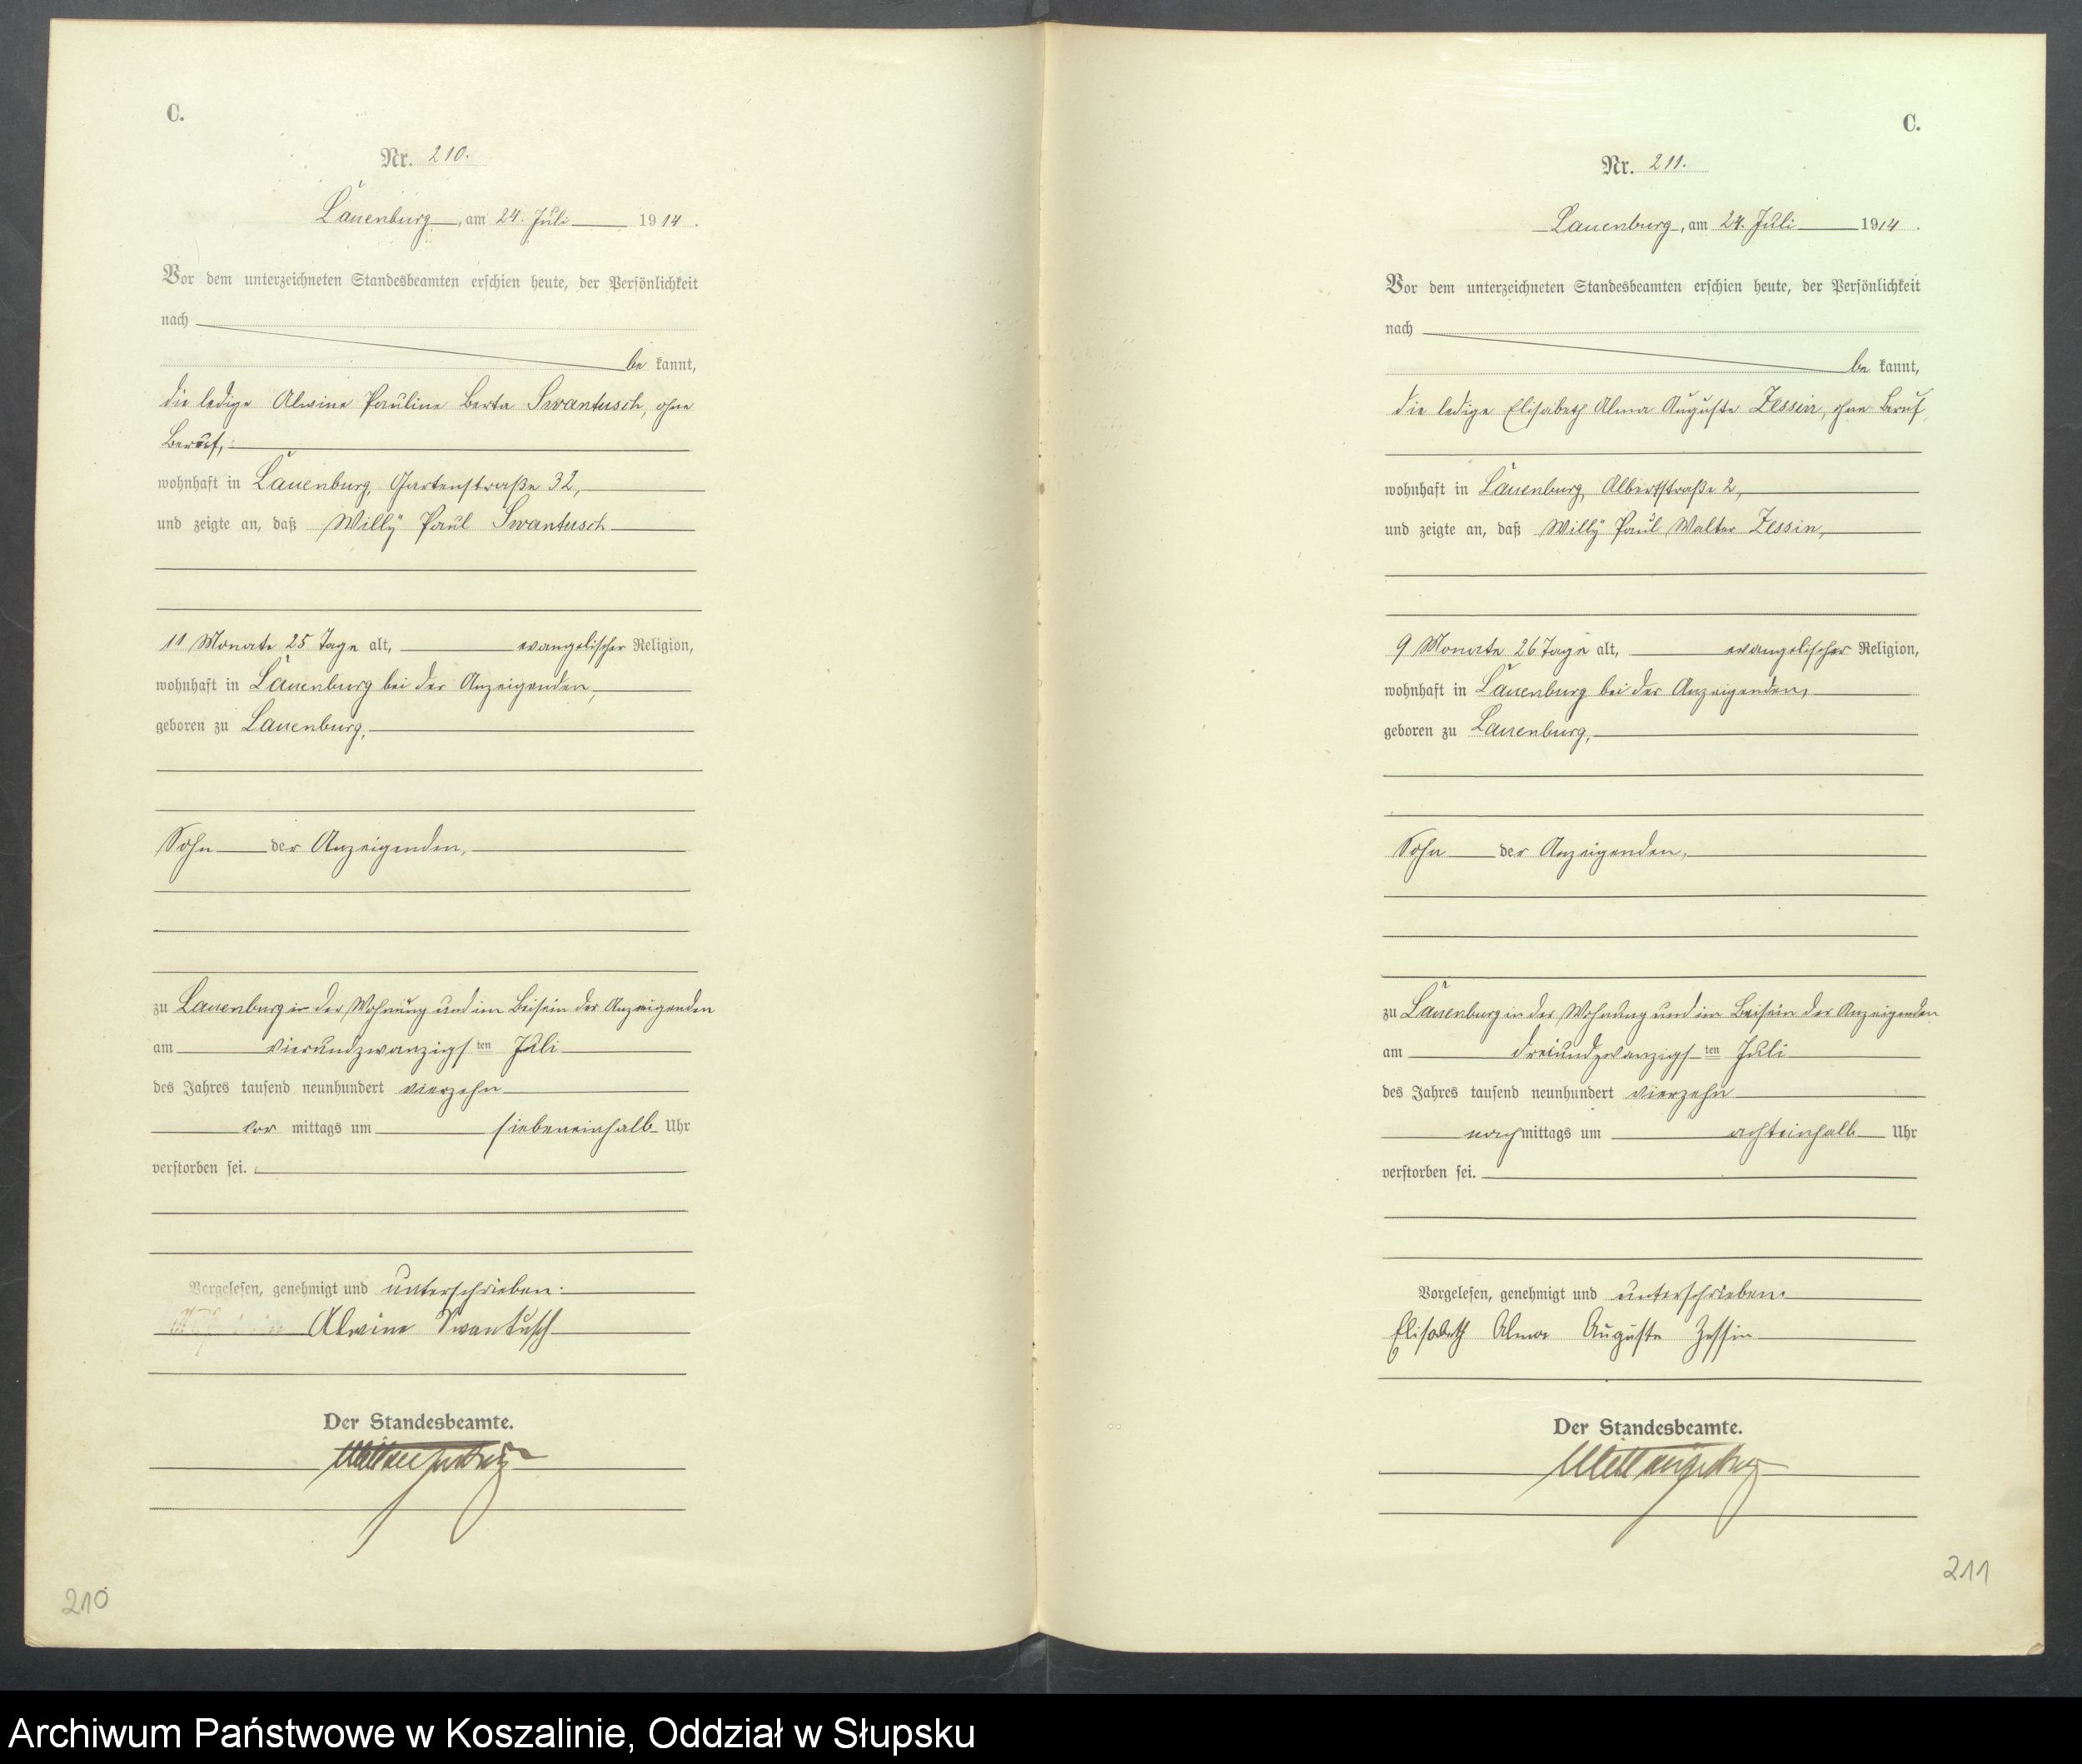 C.
Nr. 210.
Lauenburg, am 24. Juli 1914.
Vor dem unterzeichneten Standesbeamten erschien heute, der Persönlichkeit
nach
be kannt,
die ledige Alwine Pauline Berta Swantusch, ohne
Beruf,
wohnhaft in Lauenburg, Gartenstraße 32,
und zeigte an, daß Willy Paul Swantusch
11 Monate 25 Tage alt, evangelischer Religion,
wohnhaft in Lauenburg bei der Anzeigenden,
geboren zu Lauenburg,
Sohn der Anzeigenden,
zu Lauenburg in der Wohnung und im Beisein der Anzeigenden
am vierundzwanzigsten Juli
des Jahres tausend neunhundert vierzehn
vor mittags um siebeneinhalb Uhr
verstorben sei.
Vorgelesen, genehmigt und unterschrieben:
Alwine Swantusch
Der Standesbeamte.
210
C.
Nr. 211.
Lauenburg, am 24. Juli 1914.
Vor dem unterzeichneten Standesbeamten erschien heute, der Persönlichkeit
nach
be kannt,
die ledige Elisabeth Alma Auguste Zessin, ohne Beruf,
wohnhaft in Lauenburg, Albertstraße 2,
und zeigte an, daß Willy Paul Walter Zessin,
9 Monate 26 Tage alt, evangelischer Religion,
wohnhaft in Lauenburg bei der Anzeigenden,
geboren zu Lauenburg,
Sohn der Anzeigenden,
zu Lauenburg in der Wohnung und im Beisein der Anzeigenden
am dreiundzwanzigsten Juli
des Jahres tausend neunhundert vierzehn
nachmittags um achteinhalb Uhr
verstorben sei.
Vorgelesen, genehmigt und unterschrieben.
Elisabeth Alma Auguste Zessin
Der Standesbeamte.
211
Archiwum Państwowe w Koszalinie, Oddział w Słupsku